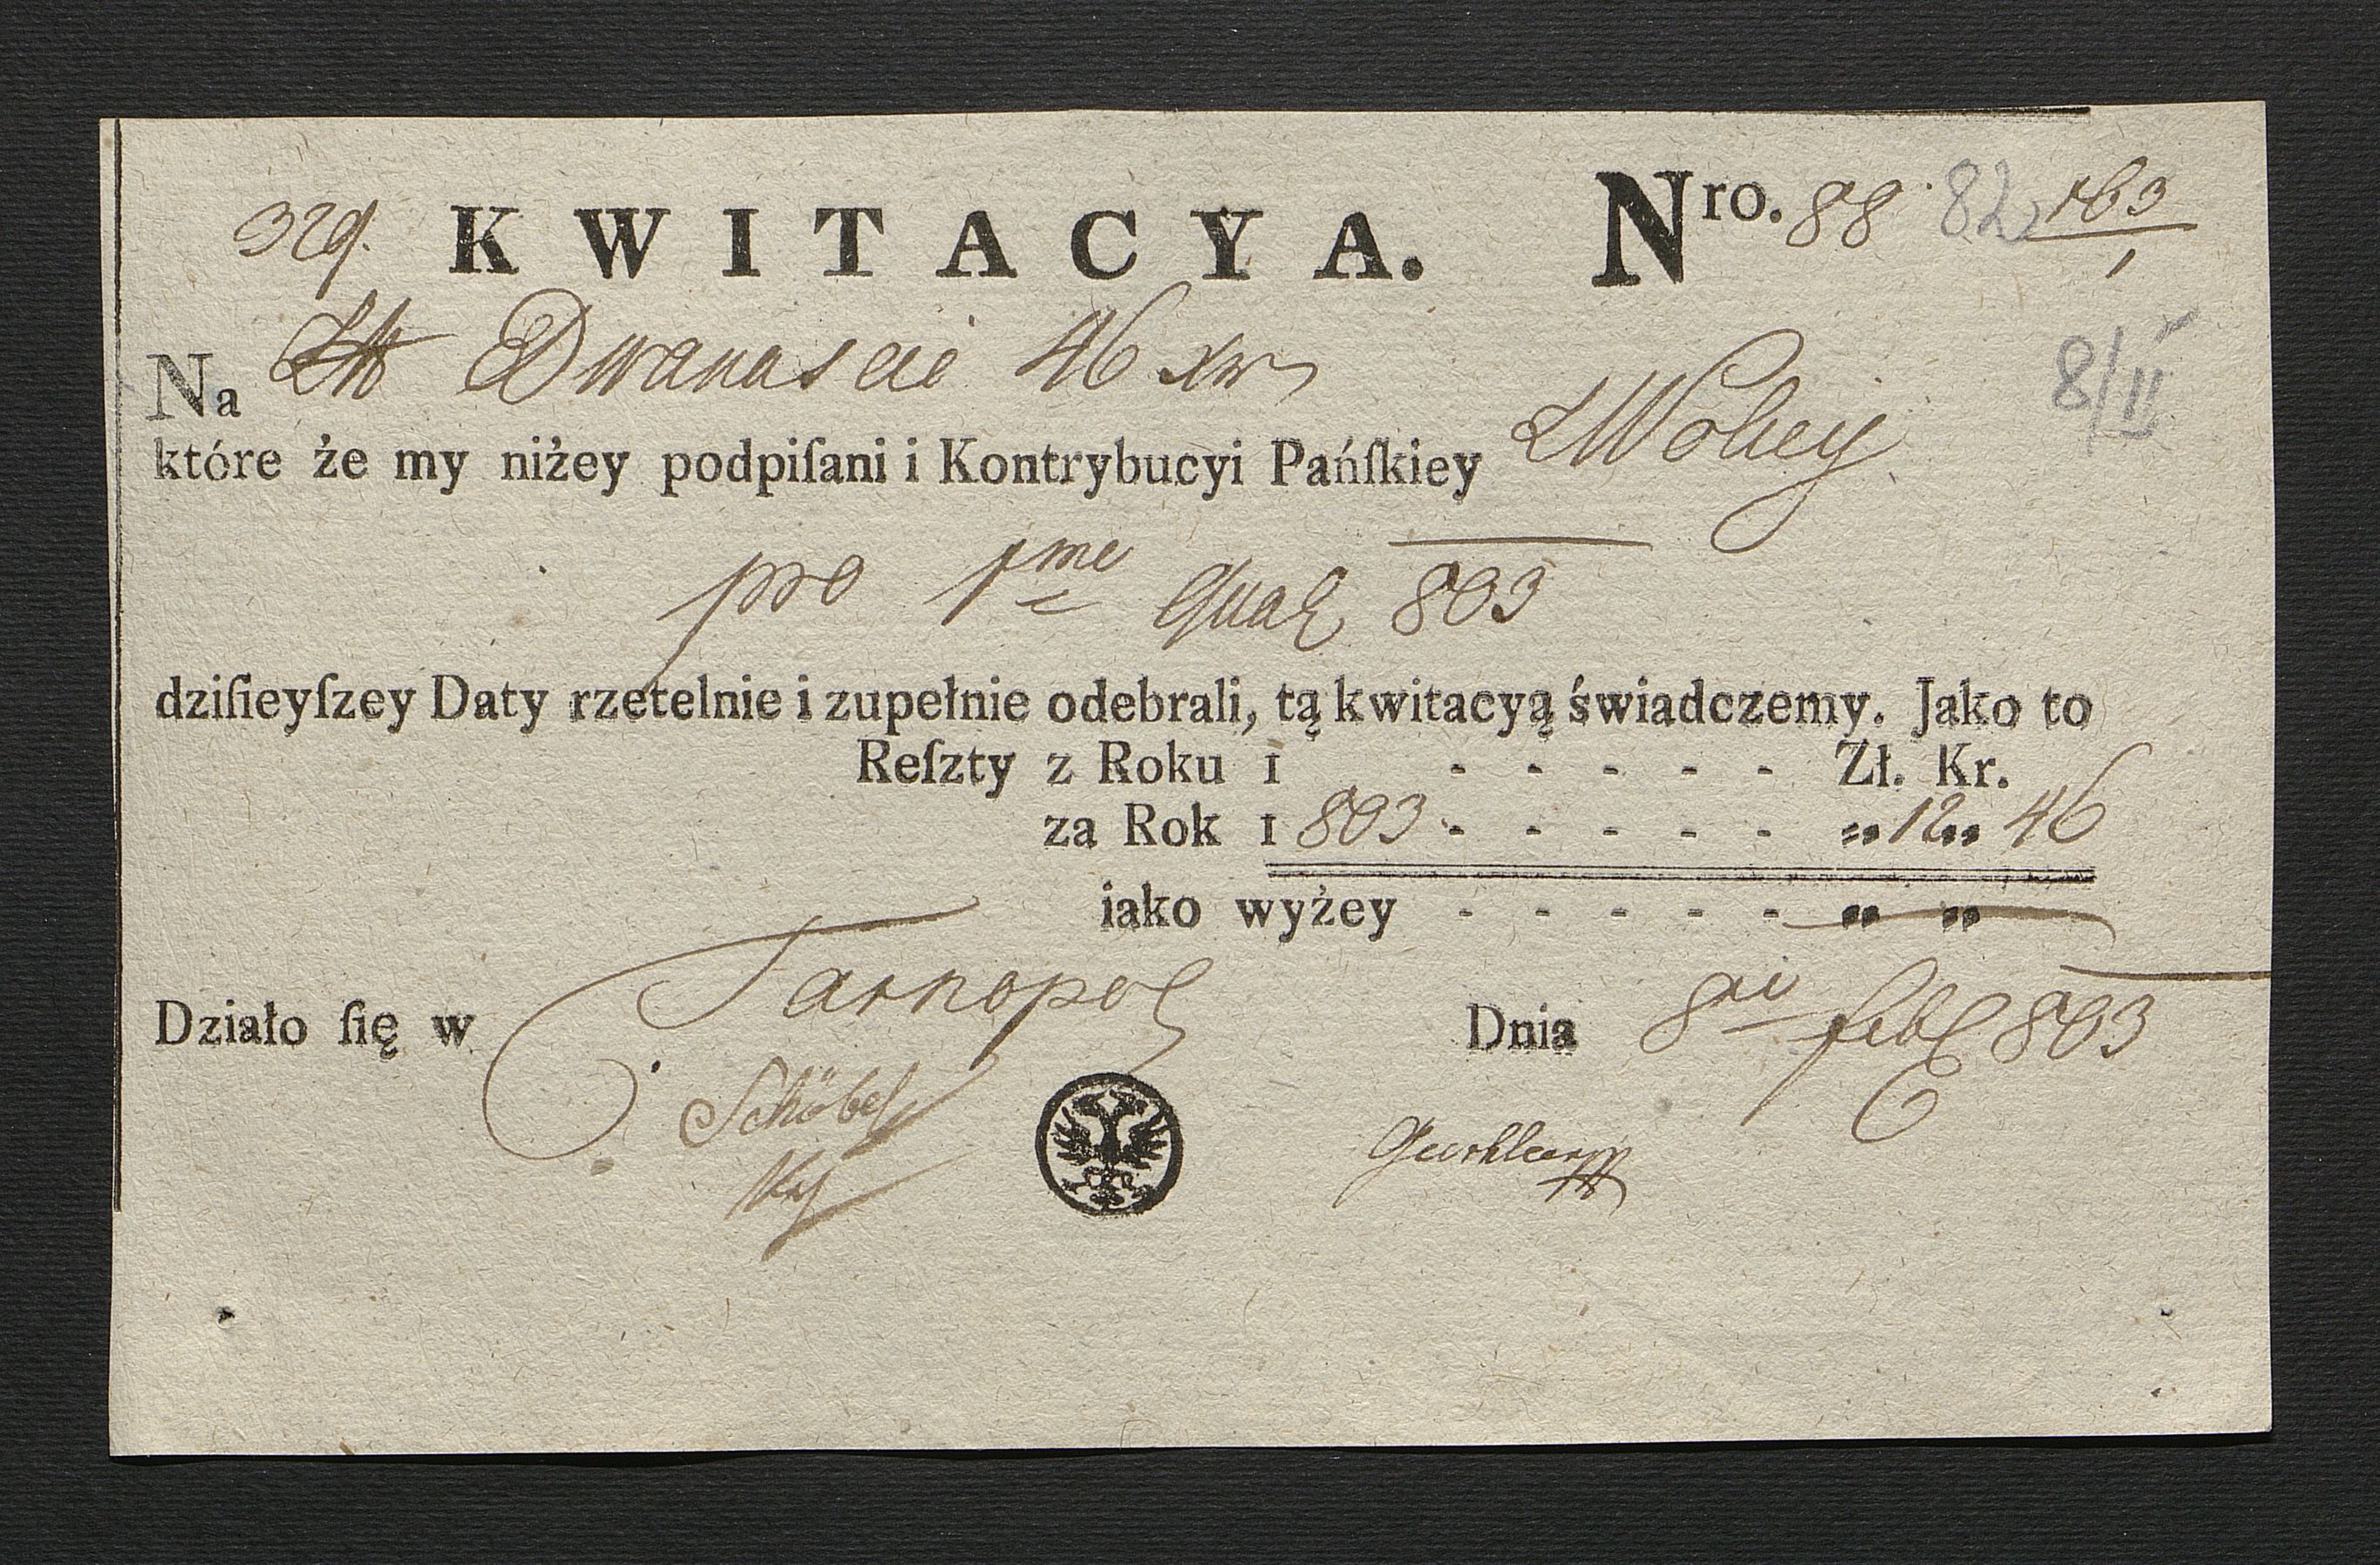 329. KWITACYA. Nro. 88. 82 163/1
Na Złt Dwanascie 46 xr
8/II
które że my niżey podpiſani i Kontrybucyi Pańſkiey z Woli
pro 1me Qual 803
dziſieyſzey Daty rzetelnie i zupełnie odebrali, tą kwitacyą świadczemy. Jako to
Reſzty z Roku 1 - - - - - Zł. Kr.
za Rok 1803 - - - - - „ 12 „ 46
iako wyżey - - - - - „ „
Działo ſię w Tarnopol Dnia 8ri febr 803
Schöbel